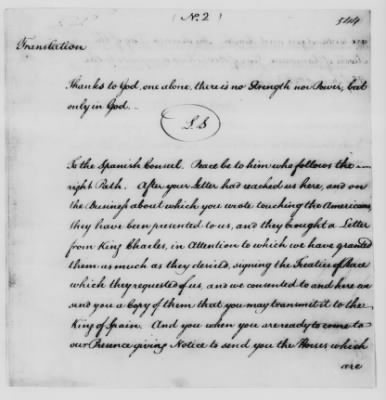 (No. 2)
544
Translation
Thanks to God, one alone, there is no Strength nor Power, but
only in God.
LS
To the Spanish Consul. Peace be to him who follows the
right Path. After your Letter had reached us here, and on
the Business about which you wrote touching the Americans
they have been presented to us, and they brought a Letter
from King Charles, in Attention to which we have granted
them as much as they desired, signing the Treaties of Peace
which they requested of us, and we consented to and here we
send you a Copy of them that you may transmit it to the
King of Spain. And you when you are ready to come to
our Presence giving Notice to send you the Horses which
are